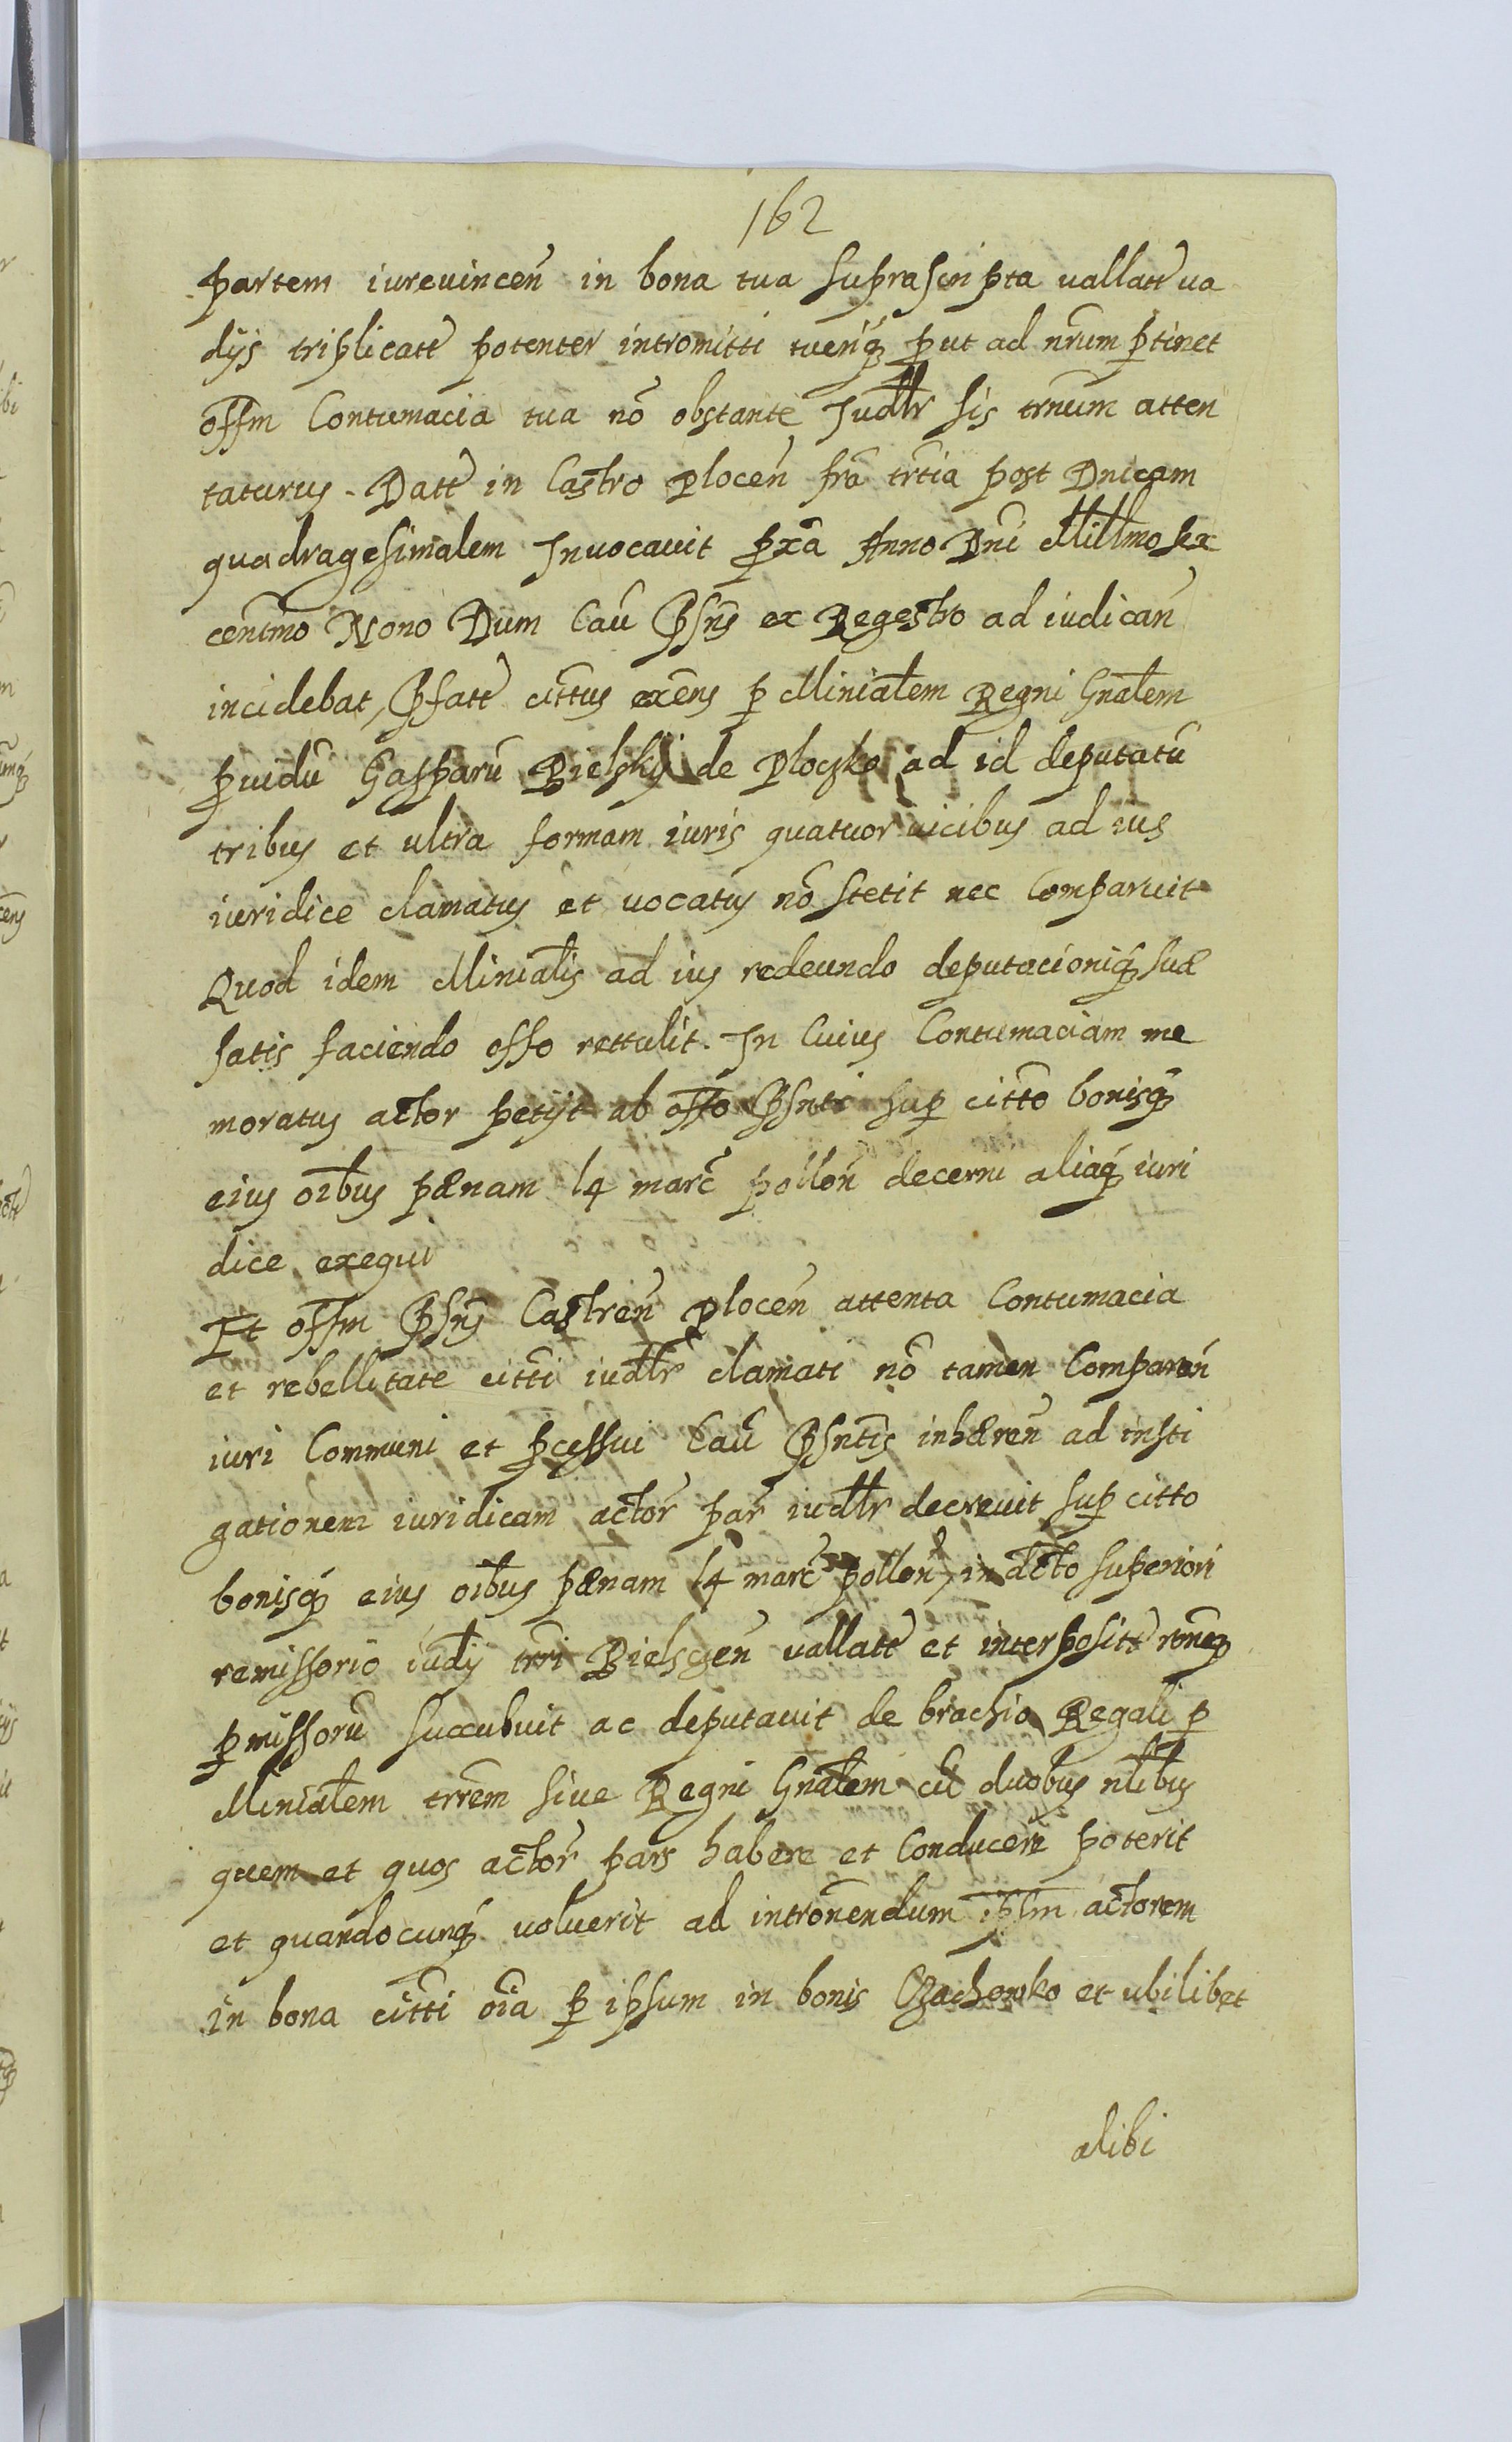 162
partem iureuincen̄ in bona tua suprascripta vallatt̄ va
dÿs triplicatt̄ potenter intromitti tueriq̨ ꝓut ad nr̄um ꝑtinet
offm̄ Contumacia tua nō obstante Iudlr̄ sis trn̄um atten
taturus. Datt̄ in Castro Plocen̄ fr̄a tr̄tia post Dn̄icam
quadragesimalem Inuocauit ꝓxā Anno Dn̄i Mill̄mo sex
centm̄o Nono Dum Cau̅ Psn̄s ex Regestro ad iudican̄
incidebat, Pfatt̄ citt̄us exn̄s ꝑ Minial̄em Regni Gnal̄em
ꝓuidū Gasparū Bielskÿ de Ploczko ad id deputatū
tribus et ultra formam iuris quatuor uicibus ad ius
iuridice clamatus et uocatus nō stetit nec Comparuit
Quod idem Minial̄is ad ius redeundo deputacioniq̨ suæ
satis faciendo offo rettulit. In Cuius Contumaciam me
moratus actor petÿt ab offo Psnti sup̱ citt̄o bonisq̨
eius oībus pænam 14 marc̄ pollon̄ decerni aliaq̨ iuri
dice exequi
Et offm̄ Psn̄s Castren̄ Plocen̄ attenta Contumacia
et rebellitate citt̄i iudlr̄ clamati nō tamen Comparen̄
iuri Communi et ꝓcessui Cau̅ Psnt̄is inhæren̄ ad insti
gationem iuridicam actor̄ par̄ iudlr̄ decreuit sup̱ citto
bonisq̨ eius oībus pænam 14 marc̄ pollon̄, in dcto superiori
remissorio iudÿ trr̄i Bielscen̄ vallatt̄ et interpositt̄ rōneq̨
p̄missorū succubuit ac deputauit de brachio Regali ꝑ
Minial̄em trr̄em siue Regni Gnal̄em cū duobus nl̄ibus
quem et quos actor̄ pars habere et Conducere poterit
et quandocunq̨ voluerit ad intron̄endum ip̄sm actorem
in bona citt̄i oīa ꝑ ipsum in bonis Czachowko et ubilibet
alibi